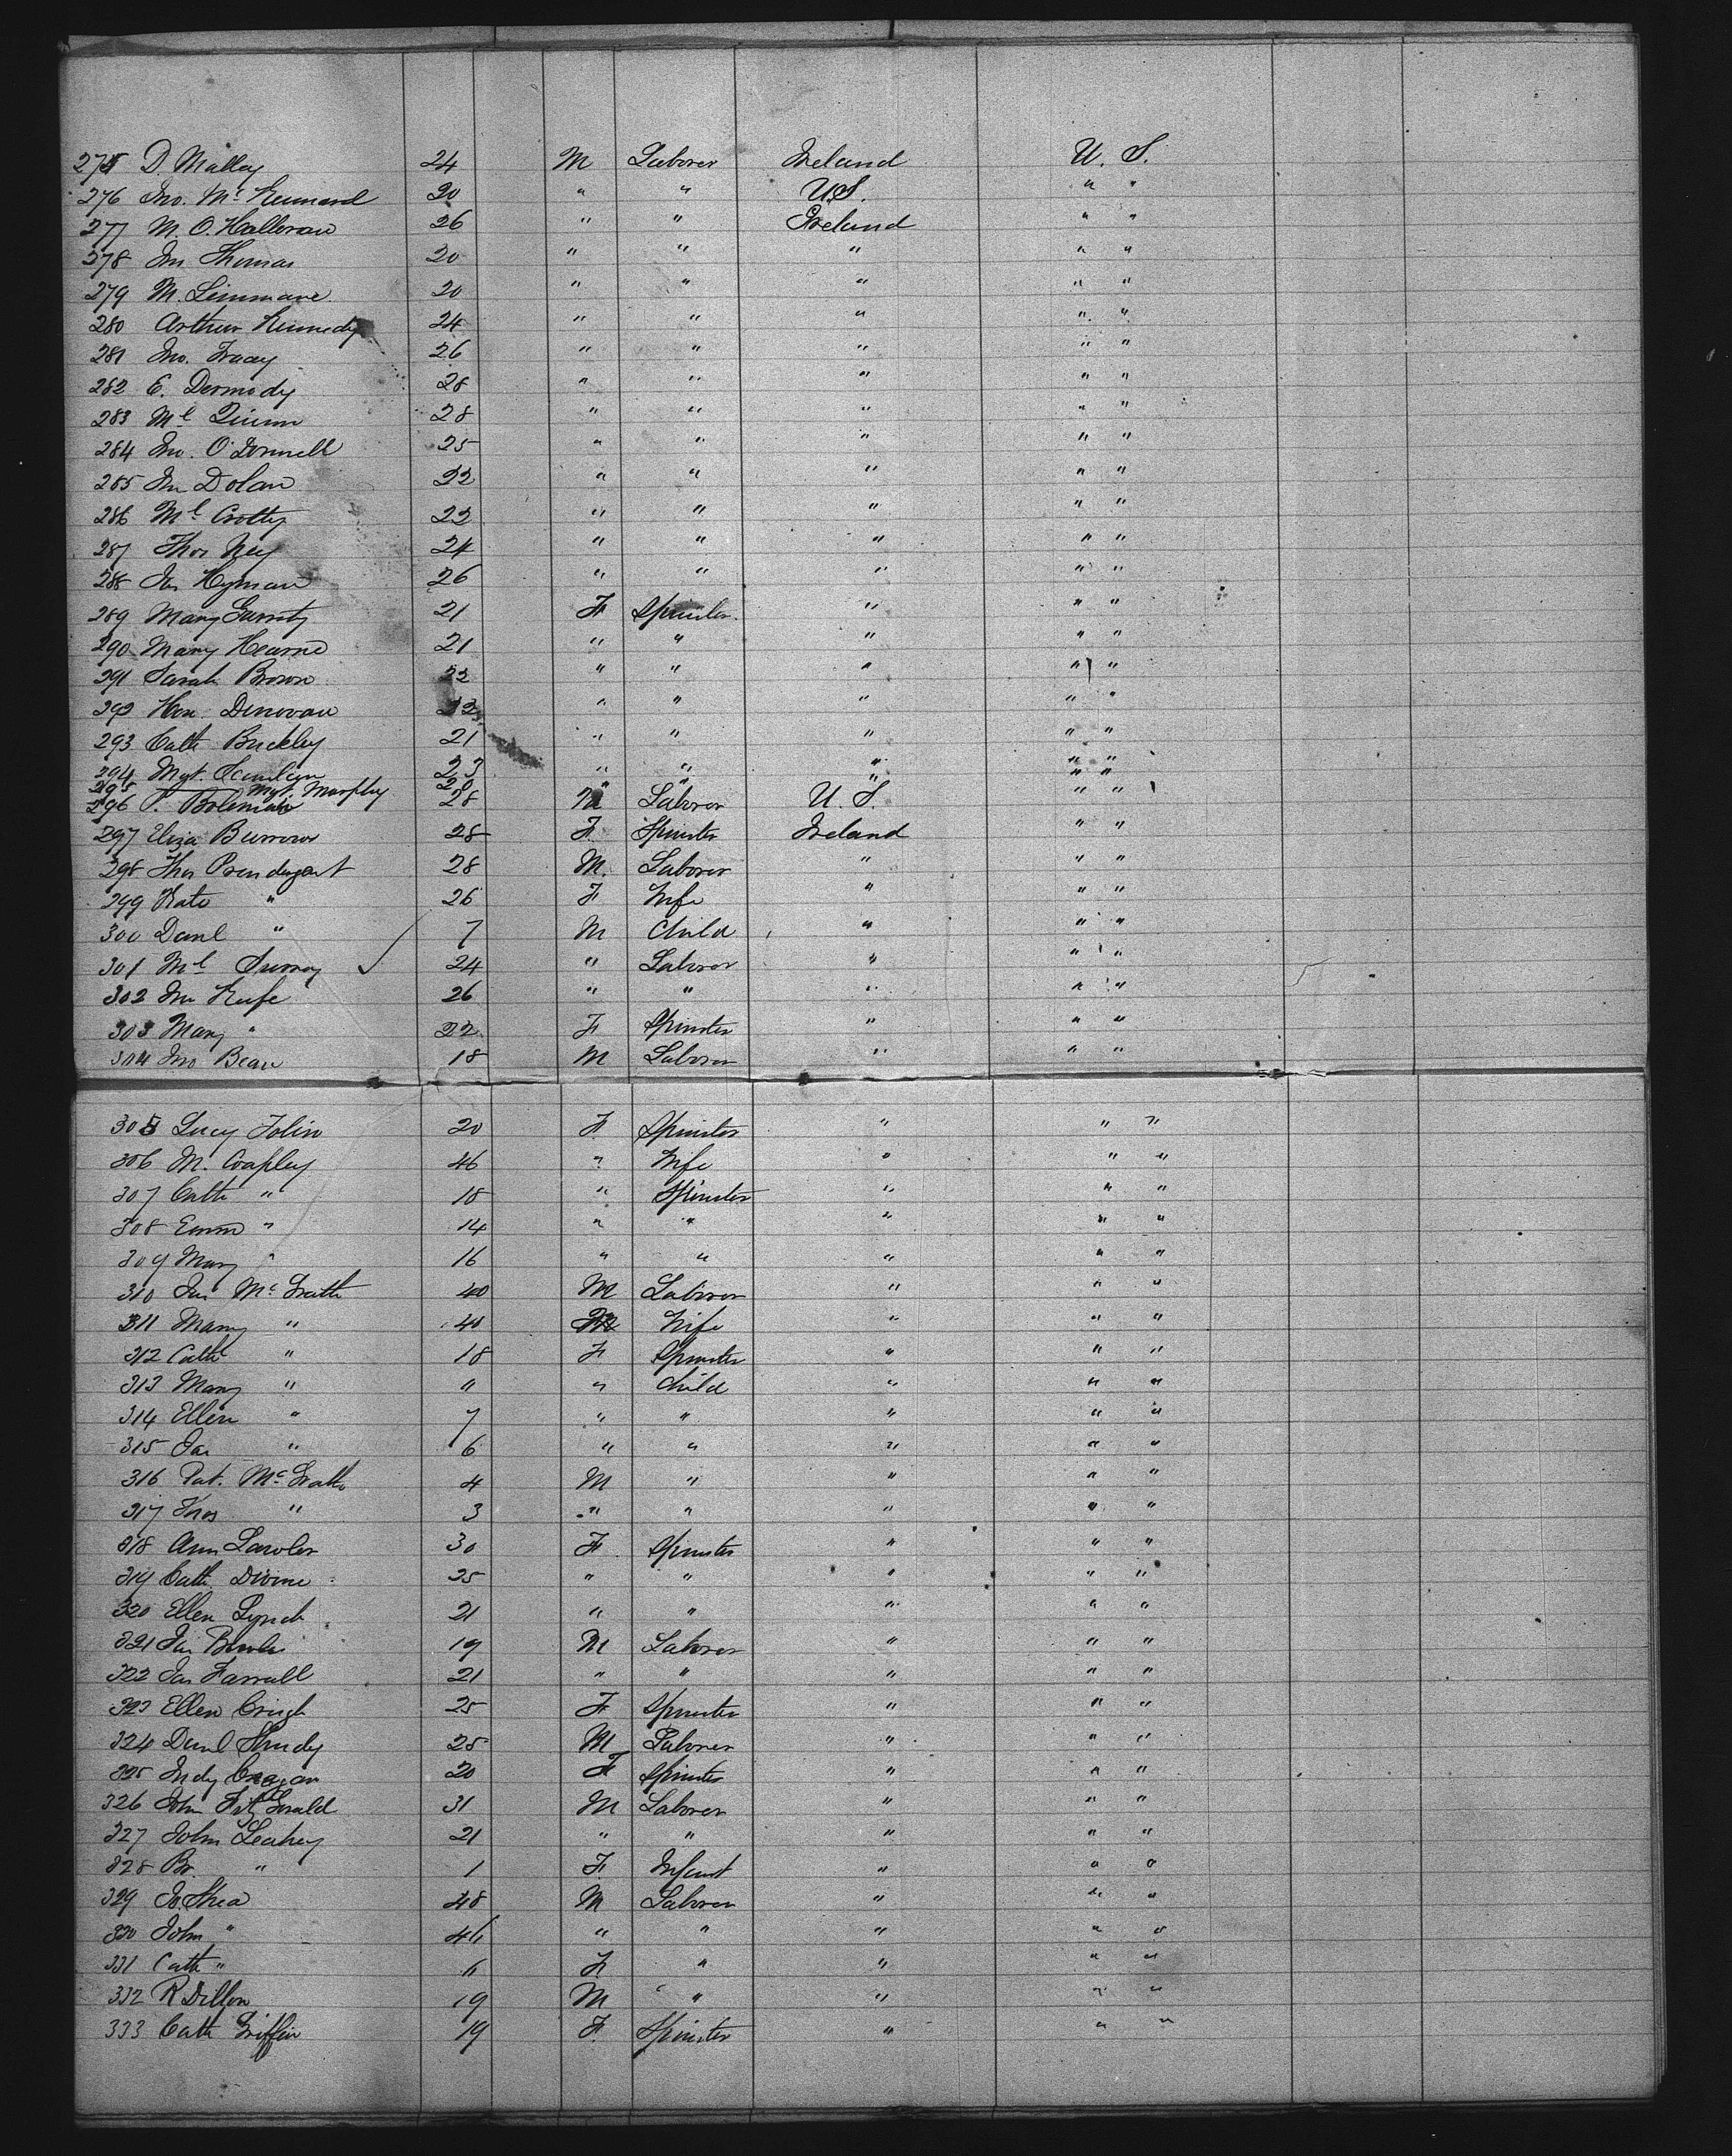 275 D. Malley 24 M Laborer Ireland U. S.
276 Jno. Mc Kennard 20 " " U.S. " "
277 M. O. Halloran 26 " " Ireland " "
278 Jno Thomas 20 " " " " "
279 M. 20 " " " " "
280 Arthur Kennedy 24 " " " " "
281 Jno. Tracy 26 " " " " "
282 E. Dermody 28 " " " " "
283 Ml Quinn 28 " " " " "
284 Jno. O'Donnell 25 " " " " "
285 Jno Dolan 22 " " " " "
286 Ml Crotty 22 " " " " "
287 Thos Ney 24 " " " " "
288 Jas Hyman 26 " " " " "
289 Mary Garrity 21 F Spinster " " "
290 Mary Hearne 21 " " " " "
291 Sarah Brown 22 " " " " "
292 Hon. Donovan 22 " " " " "
293 Cath Buckley 21 " " " " "
294 Mgt. Scanlan 23 " " " " "
295 Mgt. Murphy 20 " " " " "
296 P. 28 M Laborer U. S. " "
297 Eliza Burrows 28 F Spinster Ireland " "
298 Thos Prendergast 28 M. Laborer " " "
299 Kate " 26 F Wife " " "
300 Danl " 7 M Child " " "
301 Ml 24 " Laborer " " "
302 Jno Keefe 26 " " " " "
303 Mary " 22 F Spinster " " "
304 Jno Bean 18 M Laborer " " "
305 Lucy Tobin 20 F Spinster " " "
306 M. Coapley 46 " Wife " " "
307 Cath " 18 " Spinster " " "
308 Emm " 14 " " " " "
309 Mary " 16 " " " " "
310 Jas Mc Grath 40 M Laborer " " "
311 Mary " 40 Wife " " "
312 Cath " 18 F Spinster " " "
313 Mary " 11 " Child " " "
314 Ellen " 7 " " " " "
315 Jas " 6 " " " " "
316 Pat. Mc Grath 4 M " " " "
317 Thos " 3 " " " " "
318 Ann Lawler 30 F Spinster " " "
319 Cath. Divine 25 " " " " "
320 Ellen Lynch 21 " " " " "
321 Jas 19 M Laborer " " "
322 Jas Farrall 21 " " " " "
323 Ellen 25 F Spinster " " "
324 Danl 25 M Laborer " " "
325 20 F Spinster " " "
326 John Fitz Gerald 31 M Laborer " " "
327 John Leahey 21 " " " " "
328 Br. " 1 F Infant " " "
329 Shea 48 M Laborer " " "
330 John " 46 " " " " "
331 Cath " F " " " "
332 R Dillon 19 M " " " "
333 Cath Griffin 19 F. Spinster " " "